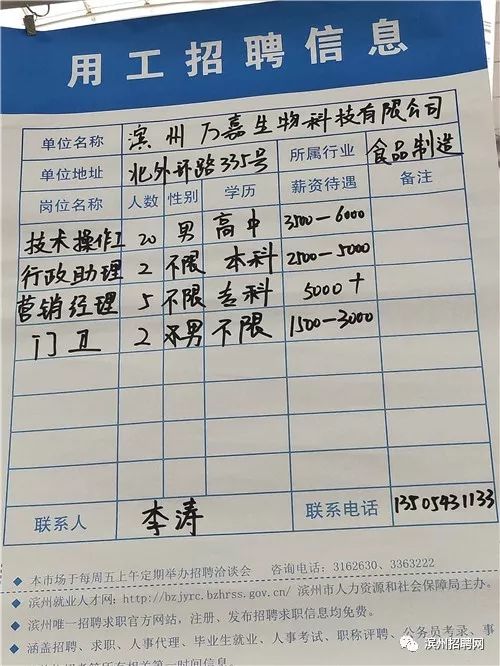 用工招聘信息
单位名称 滨州万嘉生物科技有限公司
单位地址 北外环路335号 所属行业 食品制造
岗位名称 人数 性别 学历 薪资待遇 备注
技术操作工 20 男 高中 3500-6000
行政助理 2 不限 本科 2500-5000
营销经理 5 不限 专科 5000+
门卫 2 男 不限 1500-3000
联系人 李涛 联系电话 13505431133
◆ 本市场于每周五上午定期举办招聘洽谈会 咨询电话：3162630、3363222
◆ 滨州就业人才网：http://bzjyrc.bzhrss.gov.cn/ 滨州市人力资源和社会保障局主办。
◆ 滨州唯一招聘求职官方网站，注册、发布招聘求职信息均免费。
◆ 涵盖招聘、求职、人事代理、毕业生就业、人事考试、职称评聘、公务员考录、事
滨州招聘网